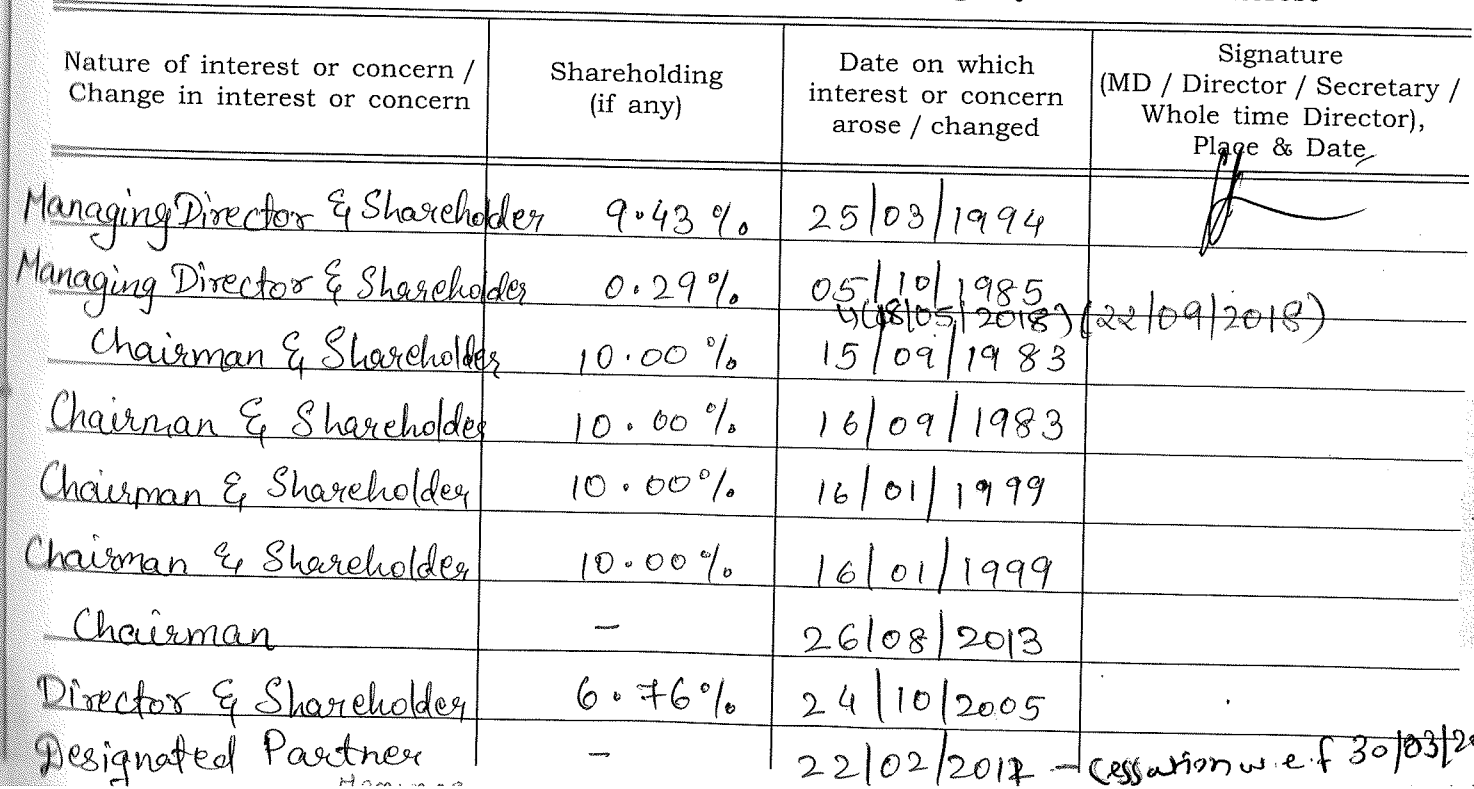 Nature of interest or concern / Change in interest or concern
Shareholding (if any)
Date on which interest or concern arose / changed
Signature (MD / Director / Secretary / Whole time Director), Place & Date
Managing Director & Shareholder 9.43 % 25/03/1994
Managing Director & Shareholder 0.29% 05/10/1985
(18/05/2018) (22/09/2018)
Chairman & Shareholder 10.00 % 15/09/1983
Chairman & Shareholder 10.00 % 16/09/1983
Chairman & Shareholder 10.00% 16/01/1999
Chairman & Shareholder 10.00% 16/01/1999
Chairman - 26/08/2013
Director & Shareholder 6.76% 24/10/2005
Designated Partner - 22/02/2017 - Cessation w.e.f 30/03/